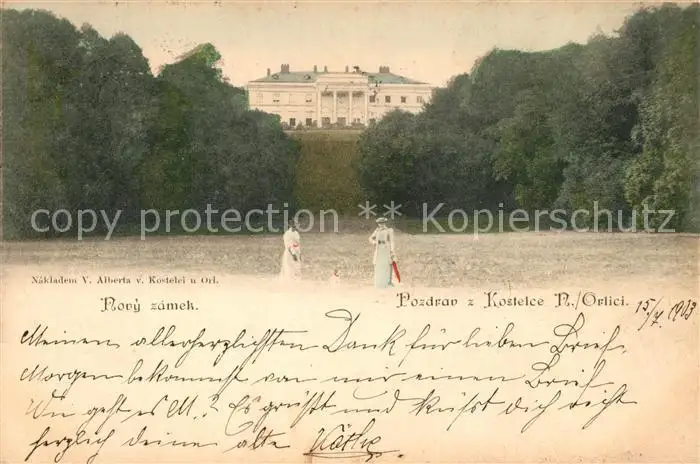 * copy protection * Kupferschutz *
Nákladem V. Alberta v. Kostelci n Orl.
Nový zámek.
Pozdrav z Kostelce N./Orlici.
15/7. 1903
Meinen allerherzlichsten Dank für lieben Brief.
Morgen bekommst von mir einen Brief
Wie geht es M.? Es grüßt und küßt Dich recht
herzlich deine alte